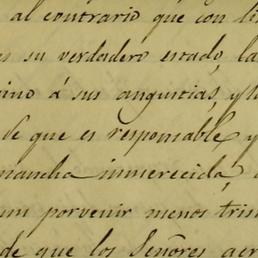 al contrario que con
su verdadero estado, la
á sus angustias, y
de que es responsable y
mancha inmerecida,
un porvenir menos tris
de que los Señores